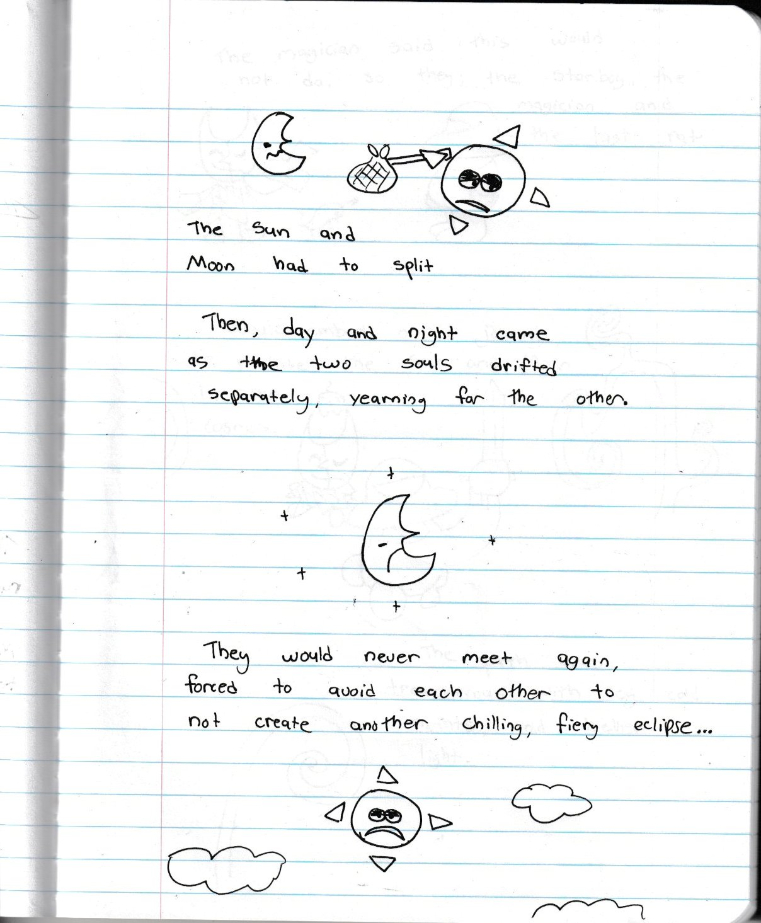 The Sun and
Moon had to split
Then, day and night came
as the two souls drifted
separately, yearning for the other.
They would never meet again,
forced to avoid each other to
not create another chilling, fiery eclipse...